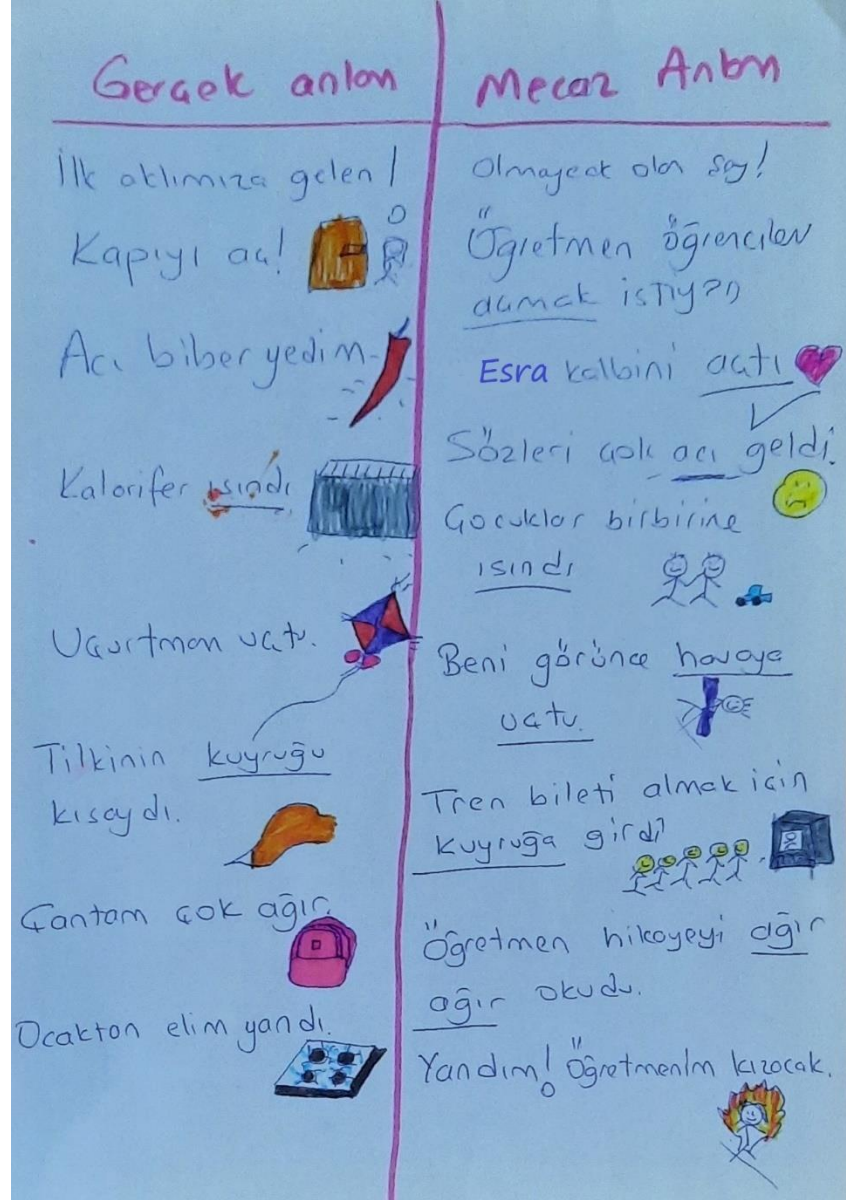 Gerçek anlam
İlk aklımıza gelen!
Kapıyı aç!
Acı biber yedim
Kalorifer ısındı
Uçurtman uçtu.
Tilkinin kuyruğu
kısaydı.
Çantam çok ağır.
Ocaktan elim yandı.
Mecaz Anlam
Olmayacak olan şey!
Öğretmen öğrencileri
açmak
Esra kalbini açtı
Sözleri çok acı geldi.
Çocuklar birbirine
ısındı
Beni görünce havaya
uçtu.
Tren bileti almak için
kuyruğa girdi
Öğretmen hikayeyi ağır
ağır okudu.
Yandım! Öğretmenim kızacak.